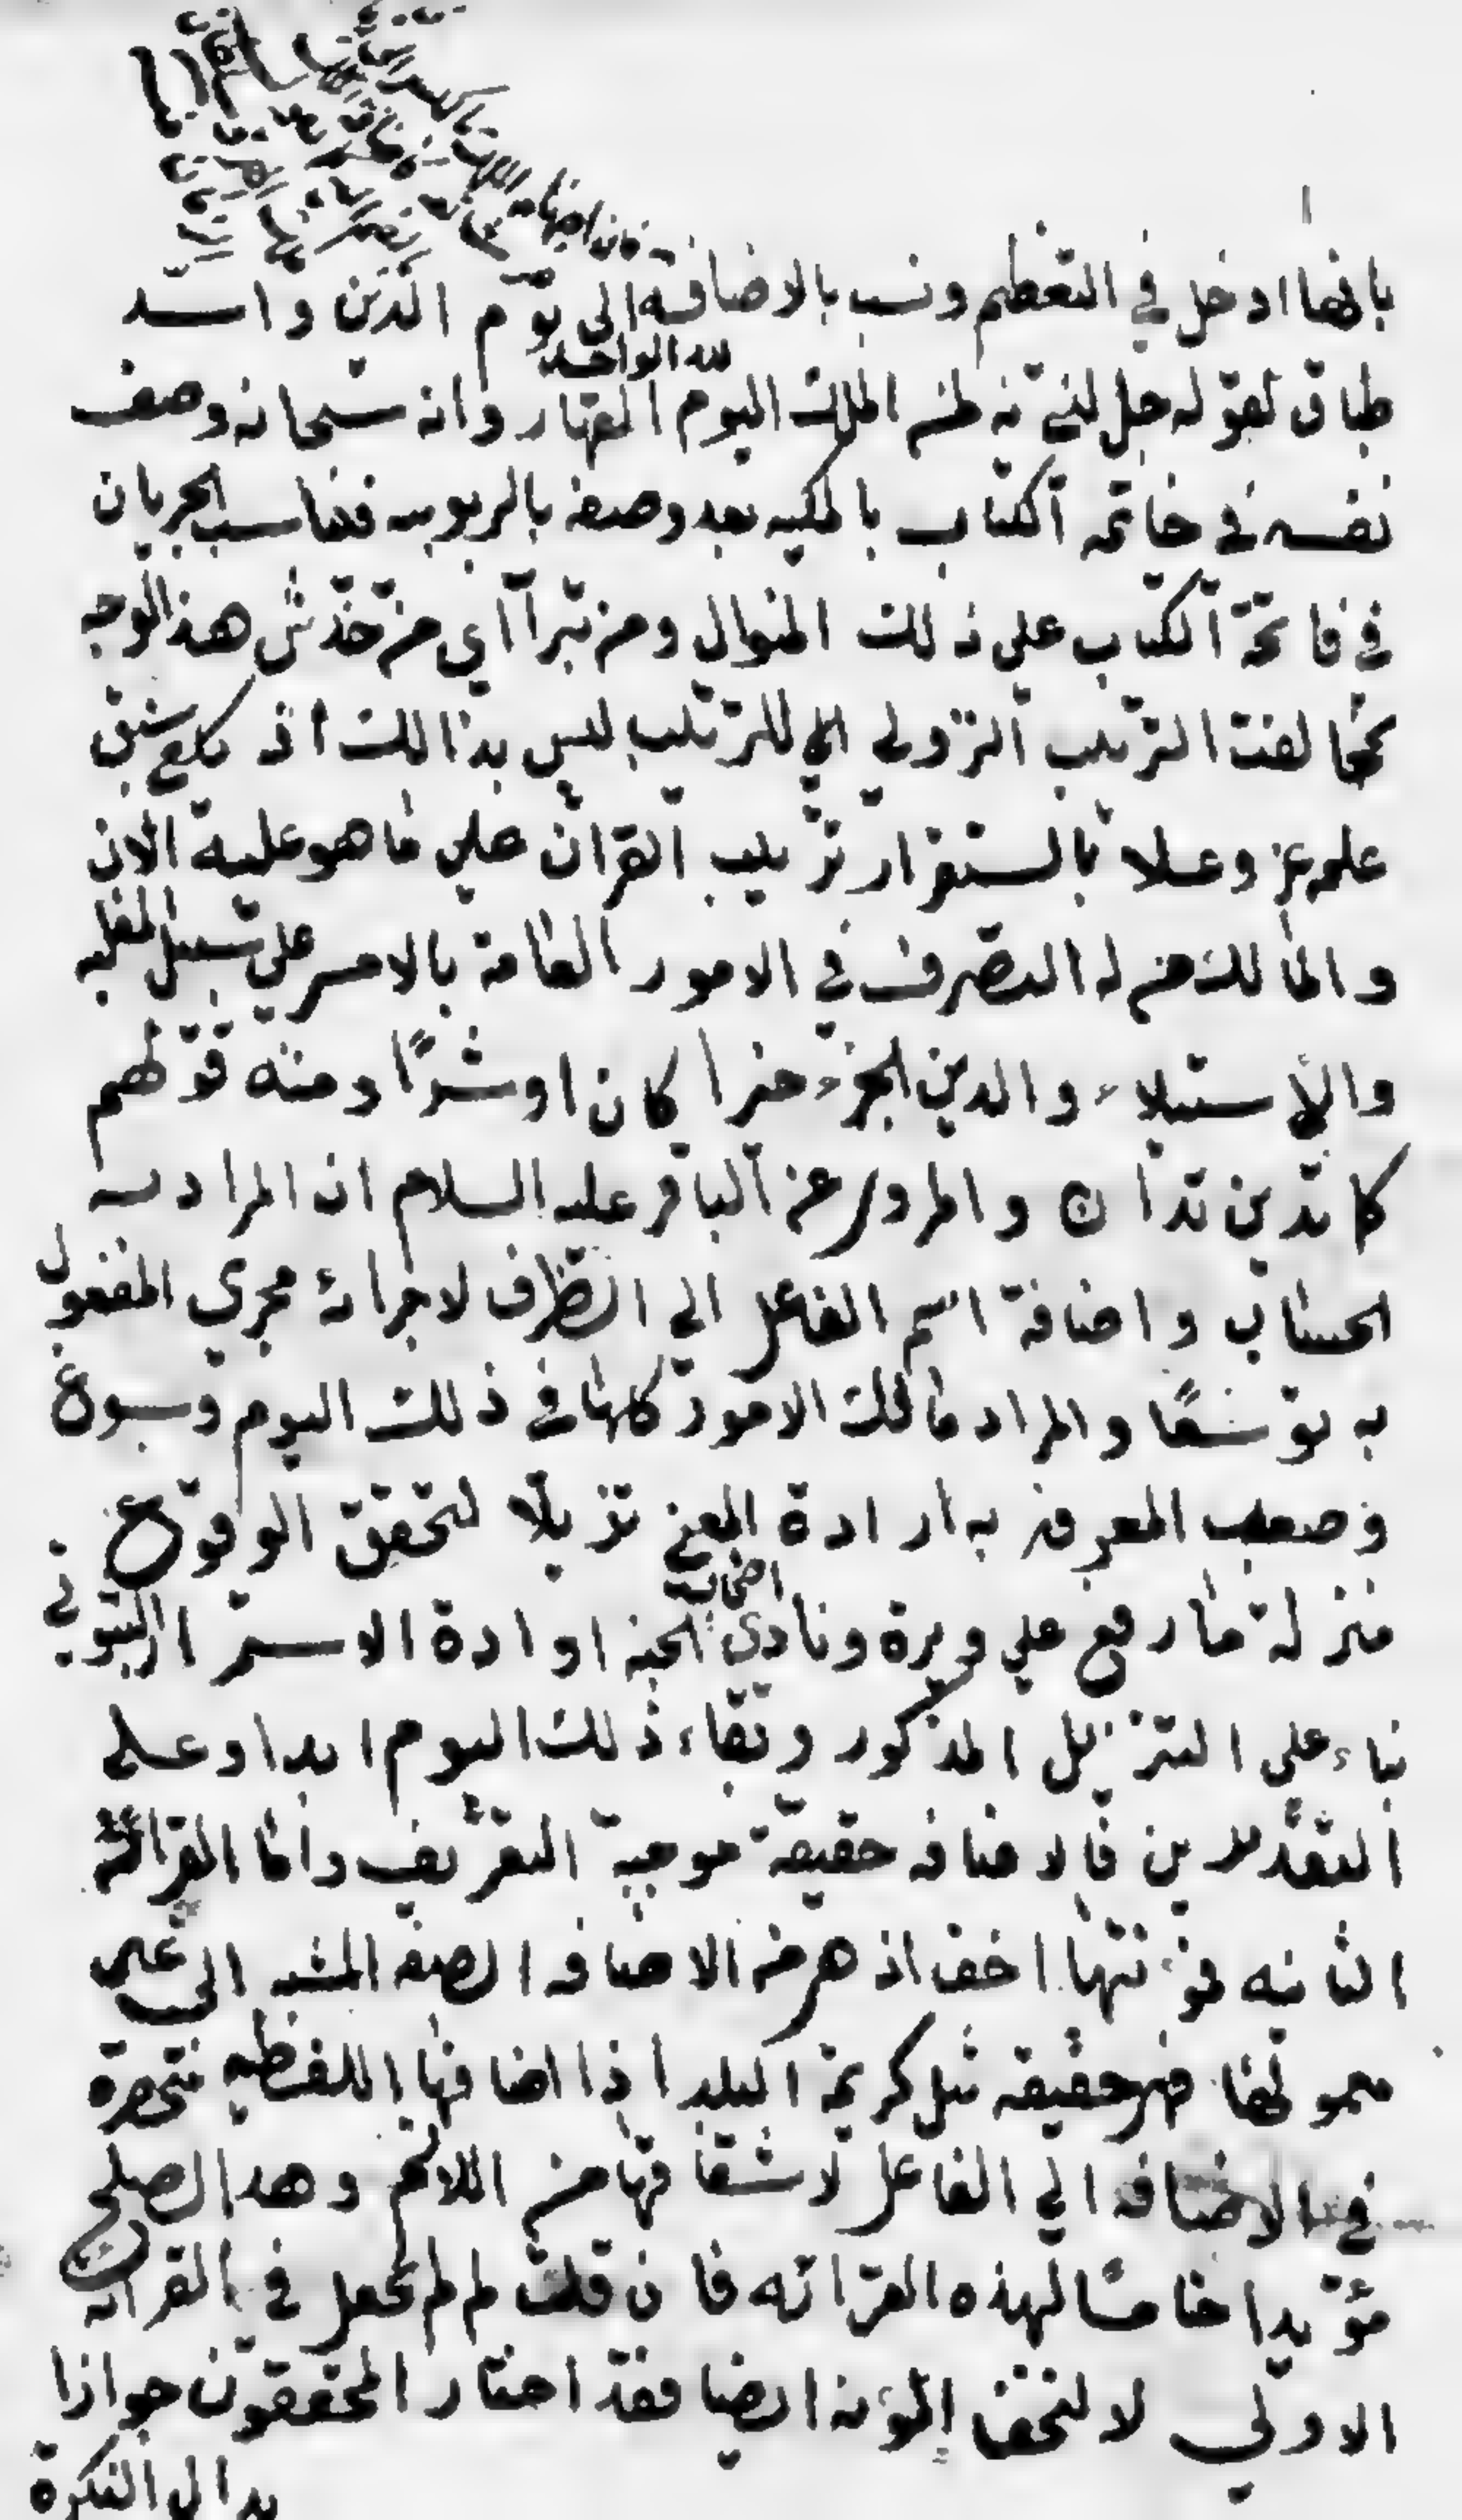 بانها ادخل في التعظيم ونسب بالاضافة الى يوم الدين واشد
طباق لقوله جل لمن الملك اليوم لله الواحد القهار وانه سبحانه وصف
نفسه في خاتمة الكتاب بالملكيه بعد وصفه بالربوبيه فناسب الجريان
في فاتحة الكتاب على ذلك المنوال ومن تبرا اي من خدش هذا الوجه
بمخالفت الترتيب النزولي الى للترتيب ليس بذالك اذ يكفي سبق
علمه عز وعلا بالستقرار ترتيب القران على ما هو عليه الان
والمالك من له التصرف في الامور العامة بالامر على سبيل الغلبه
والأستيلاء والدين الجزء خيرا كان او شرًا ومنه قولهم
كما تدين تدان والمروى عن الباقر عليه السلام ان المراد به
الحساب واضافة اسم الفاعل الى الظرف لاجرائه مجرى المفعول
به توسعًا والمراد مالك الامور كلها في ذلك اليوم وسوغ
وصف المعرفه به ارادة المضي تنزيلا لتحقق الوقوع
منزلة ما رفع على وبرة ونادى اصحاب الجنه او ادة الاستمرار الثبوتي
بناء على التنزيل المذكور وبقاء ذلك اليوم ابدا وعلى
التقديرين فالاضافه حقيقة موجبة التعريف واما القرائة
الثانيه فمؤنتها اخف اذ هي من الاضافه الصفه المشبه الى غير
معمولها فهي حقيقه مثل كريمة البلد اذا اضافتها اللفظيه منحصرة
في الاضافه الى الفاعل لاشتقاقها من اللازم وهذا الصلح
مؤيدا خامسا لهذه القرائه فان قلت لم لم تجعل في القرائه
الاولى لا لتخف المؤنه ايضا فقد اختار المحققون جوازا
بدال النكرة